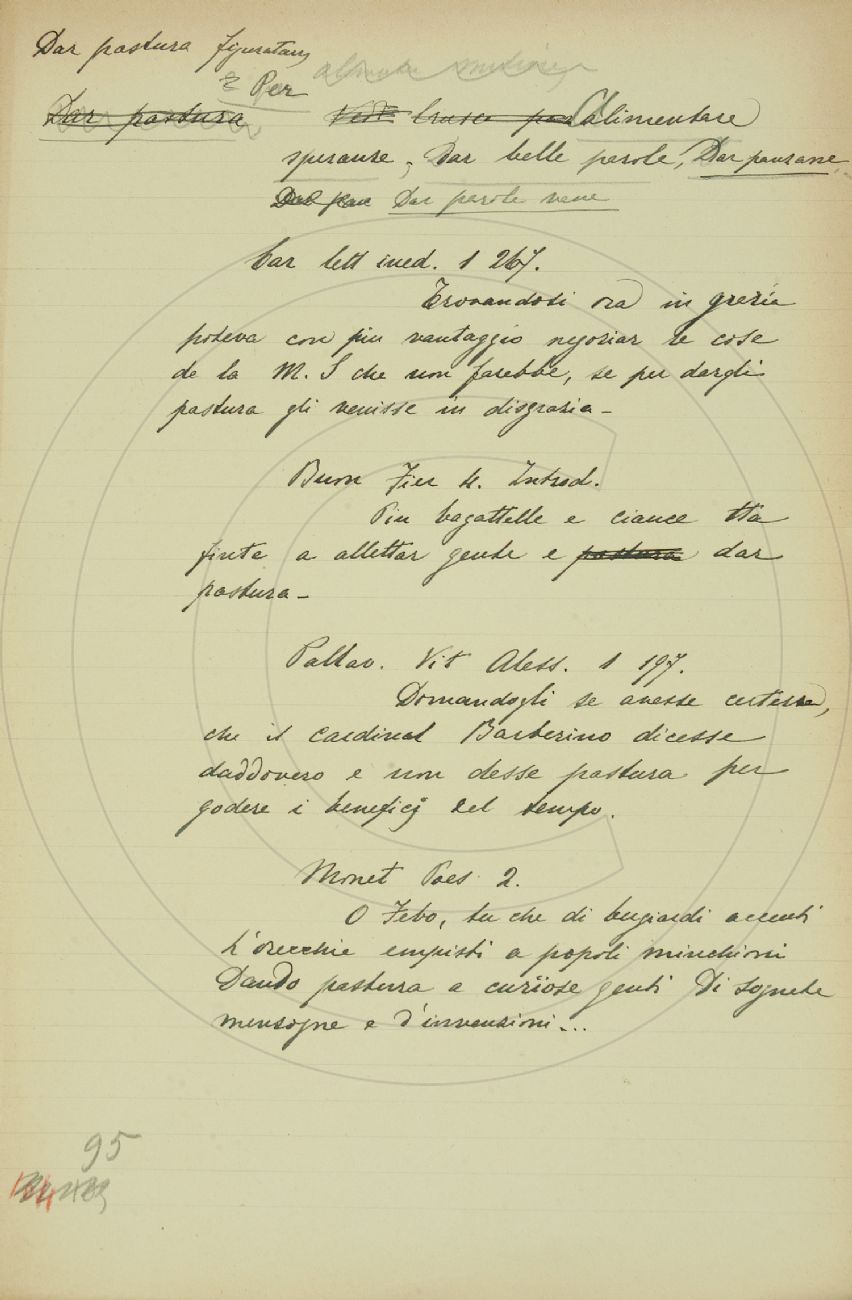 Dar pastura figuratam
e Per
Dar pastura alimentare
speranze; Dar belle parole, Dar panzane
Dar parole vane
Car lett ined. 1 267.
Trovandosi ora in grazia
poteva con piu vantaggio negoziar le cose
de la M. S che non farebbe, se per dargli
pastura gli venisse in disgrazia -
Buon Fier 4. Introd.
Piu bagattelle e ciance
finte a allettar gente e pastura dar
pastura -
Pallav. Vit Aless. 1 197.
Domandogli se avesse certezza,
che il cardinal Barberino dicesse
daddovero e non desse pastura per
godere i beneficj del tempo.
Monet Poes 2.
O Febo, tu che di bugiardi accenti
L'orecchie empisti a popoli minchioni
Dando pastura a curïose genti Di sognate
mensogne e d'invenzioni...
95